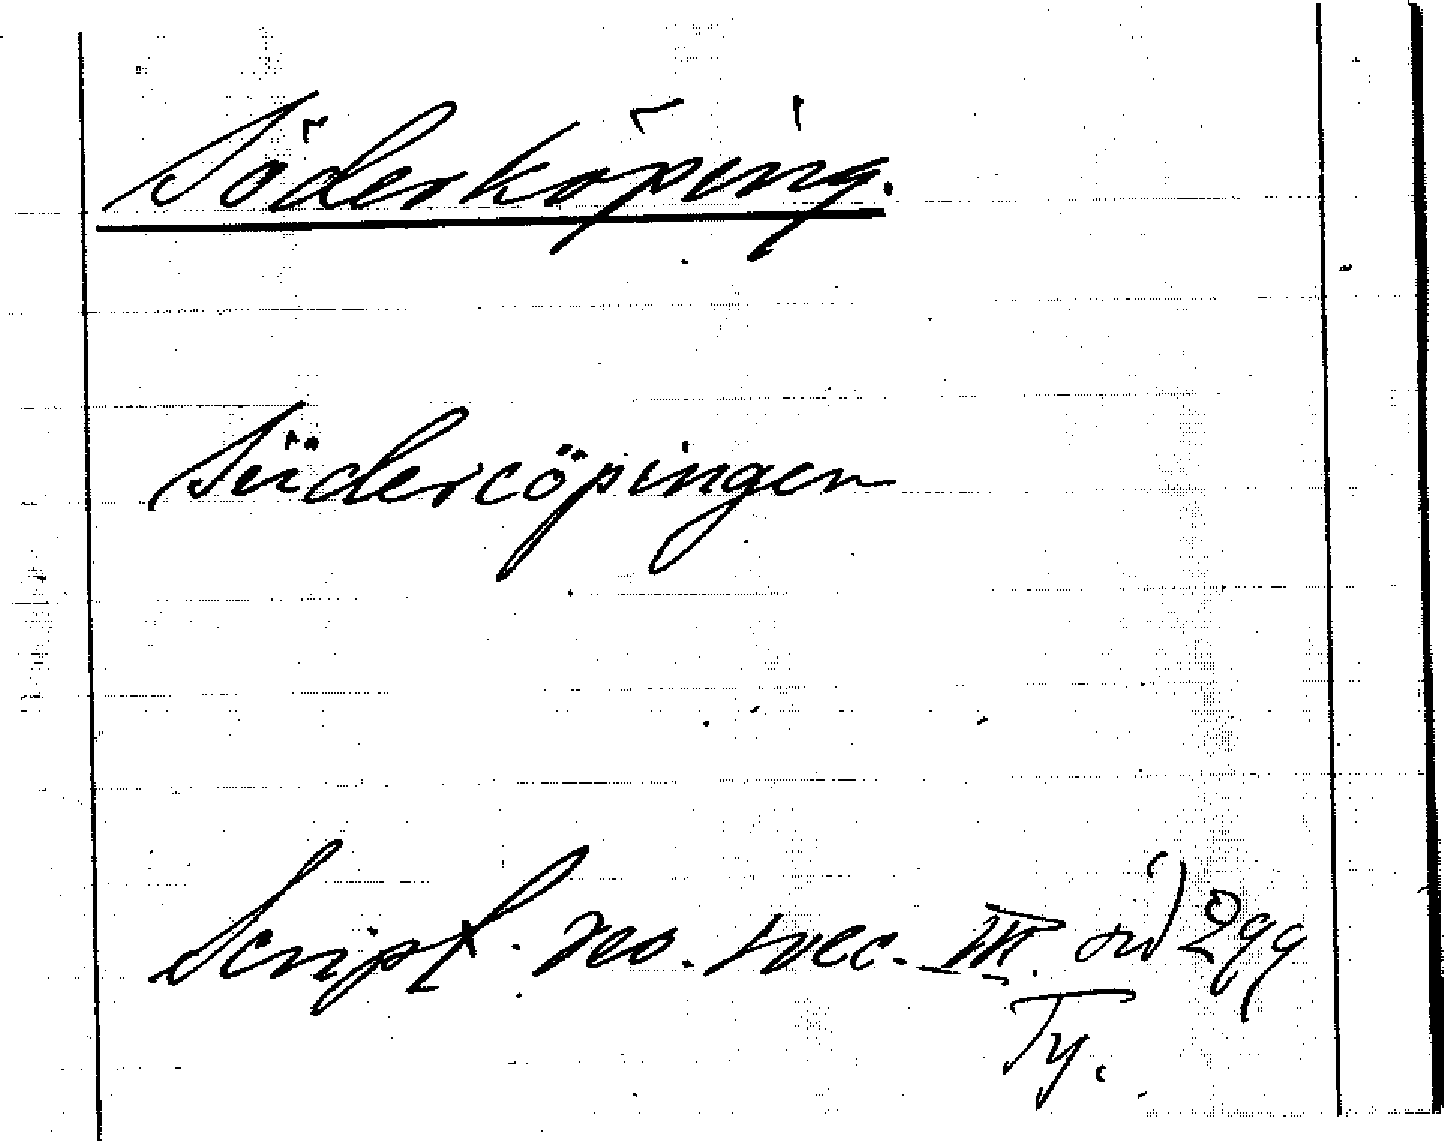 Söderköping.
Südercöpingen
Script. res. svec. III. 299
Ty.